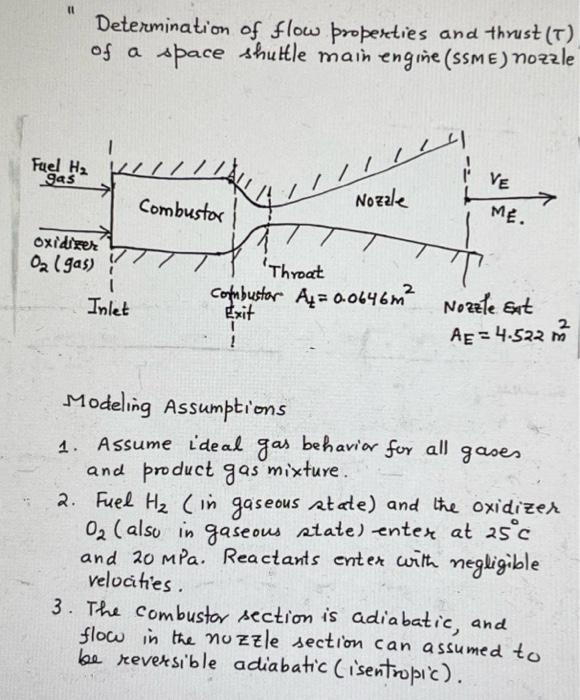 "
Determination of flow properties and thrust (T)
of a space shuttle main engine (SSME) nozzle
Fuel H2
gas
Combustor
Nozzle
VE
ME.
oxidizer
O2 (gas)
Throat
Inlet
Combustor
Exit
At = 0.0646 m²
Nozzle Exit
AE = 4.522 m²
Modeling Assumptions
1. Assume ideal gas behavior for all gases
and product gas mixture.
2. Fuel H2 (in gaseous state) and the oxidizer
O2 (also in gaseous state) enter at 25°C
and 20 MPa. Reactants enter with negligible
velocities.
3. The combustor section is adiabatic, and
flow in the nozzle section can assumed to
be reversible adiabatic (isentropic).